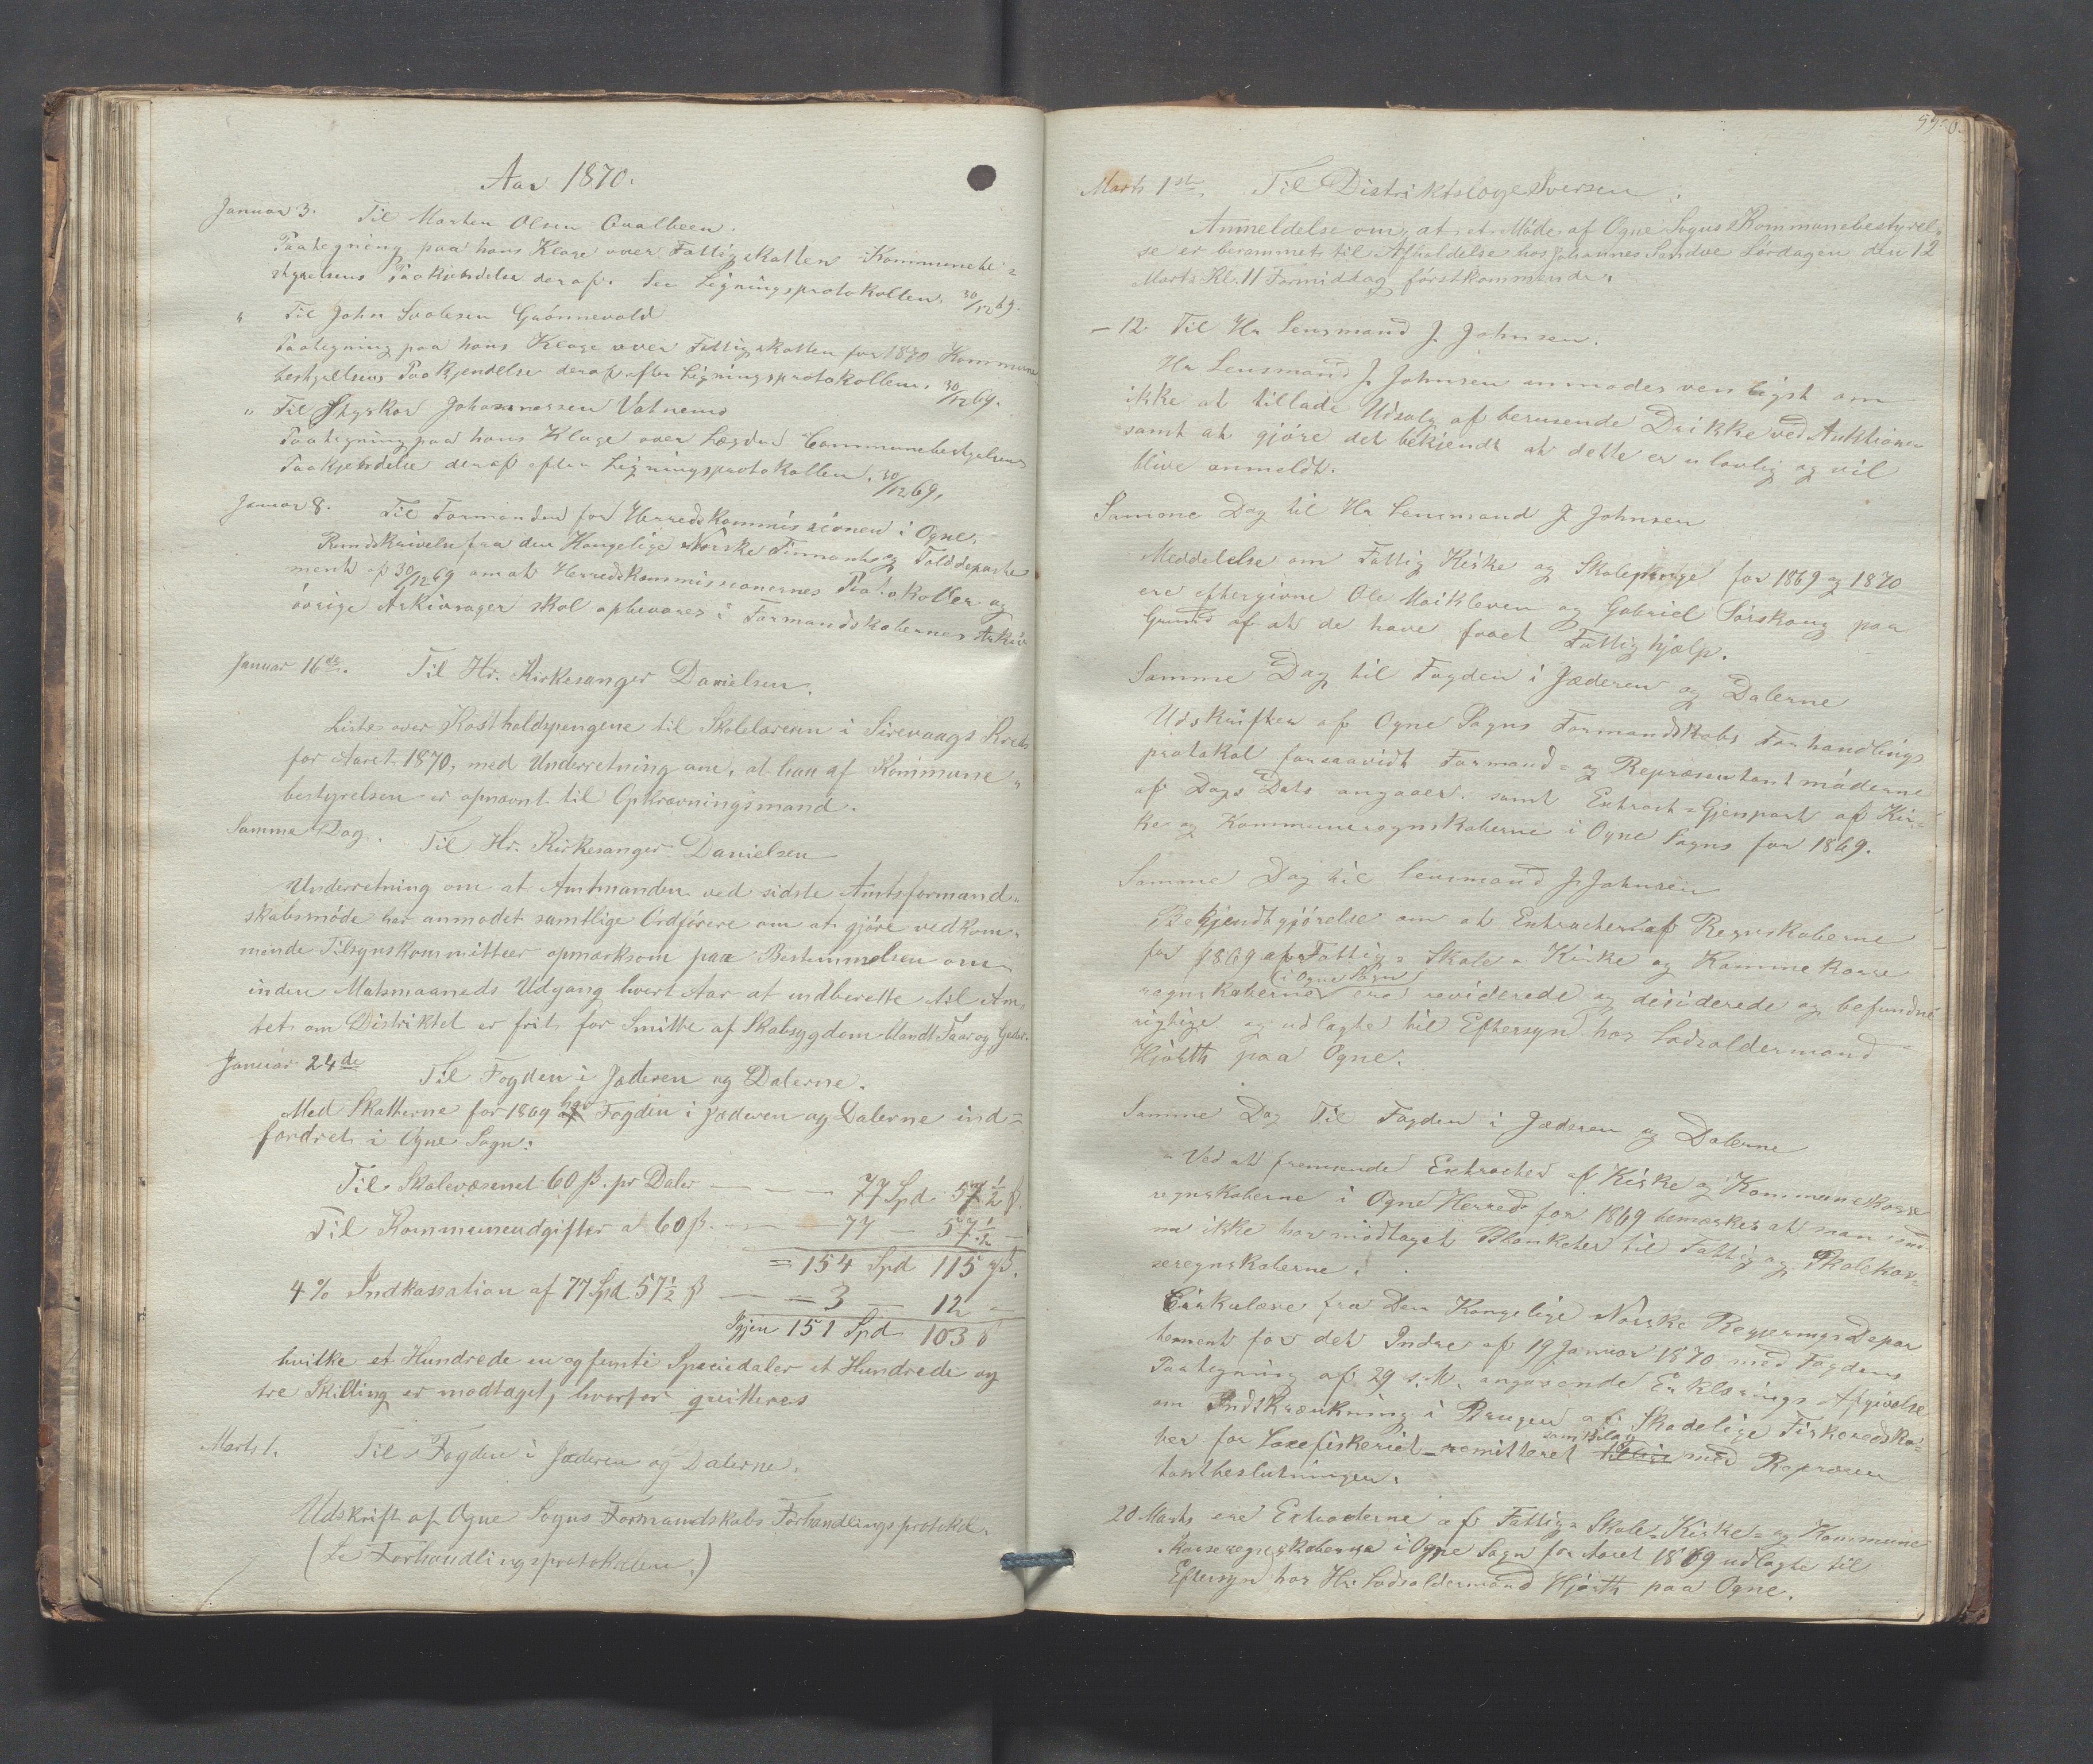 Aar 1870.
Januar 3. Til Marten Olsen Qualbeen.
Paategning paa hans Klage over Fattigskatten Kommunebe=
styrelsens Paakjendelse deraf. See Ligningsprotokollen. 30/12 69.
" Til John Svalesen Grønnevold
Paategning paa hans Klage over Fattigskatten for 1870 Kommune
bestyrelsens Paakjendelse deraf efter Ligningsprotokollen. 30/12 69.
" Til Styrkor Johannessen Vatnemo
Paategning paa hans Klage over Lægden Communebestyrelsens
Paakjendelse deraf efter Ligningsprotokollen. 30/12 69.
Januar 8. Til Formanden for Herredskommissionen i Ogne.
Rundskrivelse fra den Kongelige Norske Finants og Tolddeparte
ment af 30/12 69 om at Herredskommissionernes Protokoller og
øvrige Arkivsager skal opbevares i Formandskabernes Arkiv
Januar 16de. Til Hr. Kirkesanger Danielsen.
Liste over Kostholdspengene til Skolelæreren i Sirevaags Kreds
for Aaret 1870, med Underretning om, at han af Kommune"
bestyrelsen er opnævnt til Opkrævningsmand.
Samme Dag. Til Hr. Kirkesanger Danielsen
Underretning om at Amtmanden ved sidste Amtsformand"
skabsmøde har anmodet samtlige Ordførere om at gjøre vedkom"
mende Tilsynskommitteer opmærksom paa Bestemmelsen om
inden Matsmaaneds Udgang hvert Aar at indberette til Am
tet om Distriktet er frit for Smitte af Skabsygdom blandt Faar og Geder.
Januar 24de Til Fogden i Jæderen og Dalerne.
Med Skatterne for 1869 har Fogden i Jæderen og Dalerne ind=
fordret i Ogne Sogn:
Til Skolevæsenet 60 ß. pr Daler — — — 77 Spd. 57 1/2 ß.
Til Kommuneudgifter a 60 ß. — — 77 — 57 1/2 —
= 154 Spd 115 ß.
4 % Indkassation af 77 Spd 57 1/2 ß — — = 3 — 12 —
Igjen 151 Spd 103 ß
hvilke et Hundrede en og femti Speciedaler et Hundrede og
tre Skilling er modtaget, hvorfor qvitteres
Marts 1. Til Fogden i Jæderen og Dalerne.
Udskrift af Ogne Sogns Formandskabs Forhandlingsprotokol.
(Se Forhandlingsprotokollen.)
Marts 1ste Til Distriktslæge Iversen.
Anmeldelse om, at et Møde af Ogne Sogns Kommunebestyrel"
se er berammet til Afholdelse hos Johannes Sandve Lørdagen den 12
Marts Kl. 11 Formiddag førstkommende.
— 12 Til Hr Lensmand J. Johnsen.
Hr Lensmand J. Johnsen anmodes venligst om
ikke at tillade Udsalg af berusende Drikke ved Auktioner
samt at gjøre det bekjendt at dette er ulovlig og vil
blive anmeldt.
Samme Dag til Hr Lensmand J Johnsen
Meddelelse om Fattig Kirke og Skolepenge for 1869 og 1870
ere eftergivne Ole Moikleven og Gabriel Sørskoug paa
Grund af at de have faaet Fattighjælp.
Samme Dag til Fogden i Jæderen og Dalerne
Udskrifter af Ogne Sogns Formandskabs Forhandlings
protokol forsaavidt Formand= og Repræsentantmøderne
af Dags Dato angaaer. samt Extract=Gjenpart af Kir=
ke og Kommuneregnskaberne i Ogne Sogns for 1869.
Samme Dag til Lensmand J. Johnsen
Bekjendtgjørelse om at Extracter af Regnskaberne
for 1869 af Fattig= Skole= Kirke og Kommekasse
regnskaberne (i Ogne Sogn) ere reviderede og desiderede og befundne
rigtige og udlagte til Eftersyn hos Lodsoldermand
Hjorth paa Ogne.
Samme Dag Til Fogden i Jæderen og Dalerne
Ved at fremsende Extracter af Kirke og Kommunekasse
regnskaberne i Ogne Herred for 1869 bemærkes at man end
nu ikke har modtaget Blanketer til Fattig og Skolekas=
seregnskaberne.
Cirkulære fra Den Kongelige Norske Regjerings Depar
tement for det Indre af 19 Januar 1870 med Fogdens
Paategning af 29 s. M. angaaende Erklærings Afgivelse
om Indskrænkning i Brugen af Skadelige Fiskeredska=
ber for Laxefiskeriet remitteret som Bilag med Repræsen
tantbeslutningen.
20 Marts ere Extracterne af Fattig= Skole= Kirke= og Kommune
kasseregnskaberne i Ogne Sogn for Aaret 1869 udlagte til
Eftersyn hos Hr. Lodsoldermand Hjorth paa Ogne.